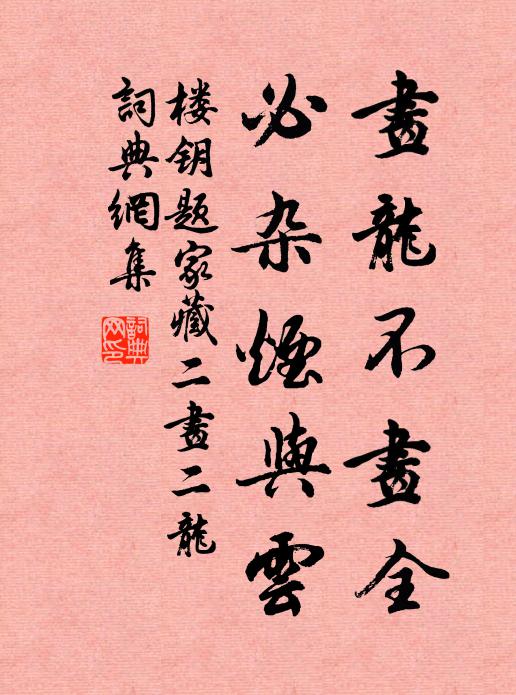 畫龍不畫全
必杂煙與雲
楼钥题家藏二畫二龍
詞典網集
詞典网印